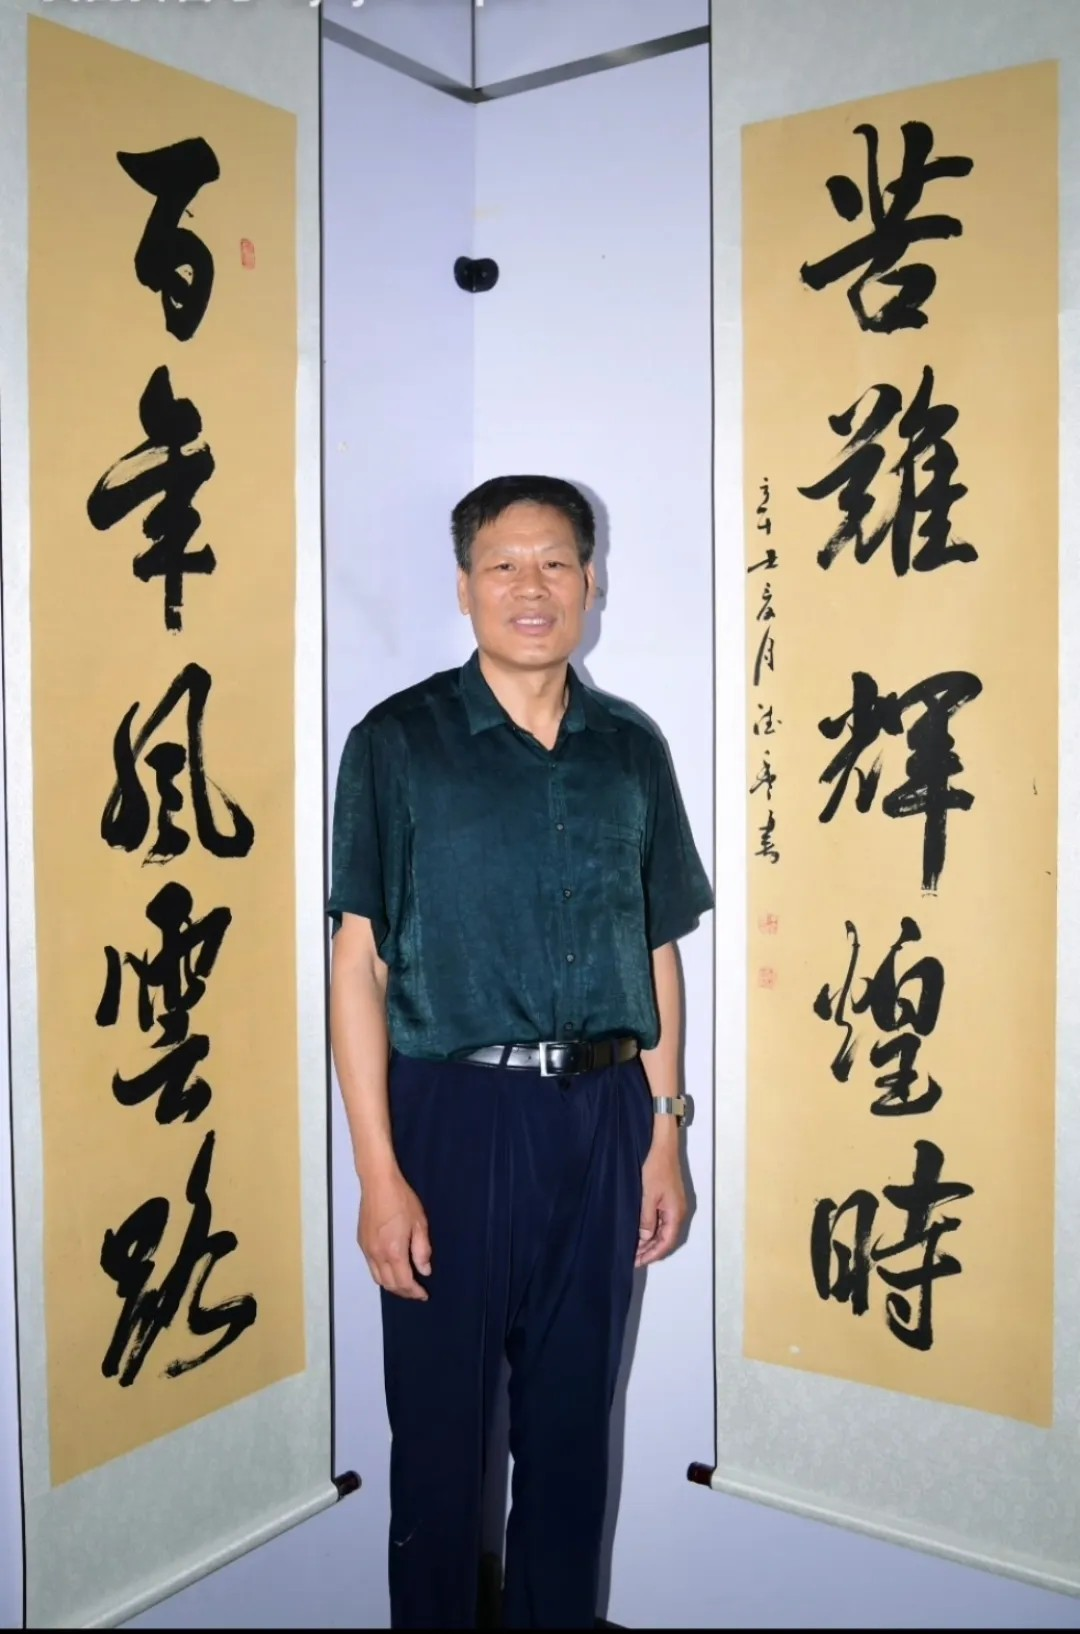 百年風雲路
苦難輝煌時
辛丑夏月德永書